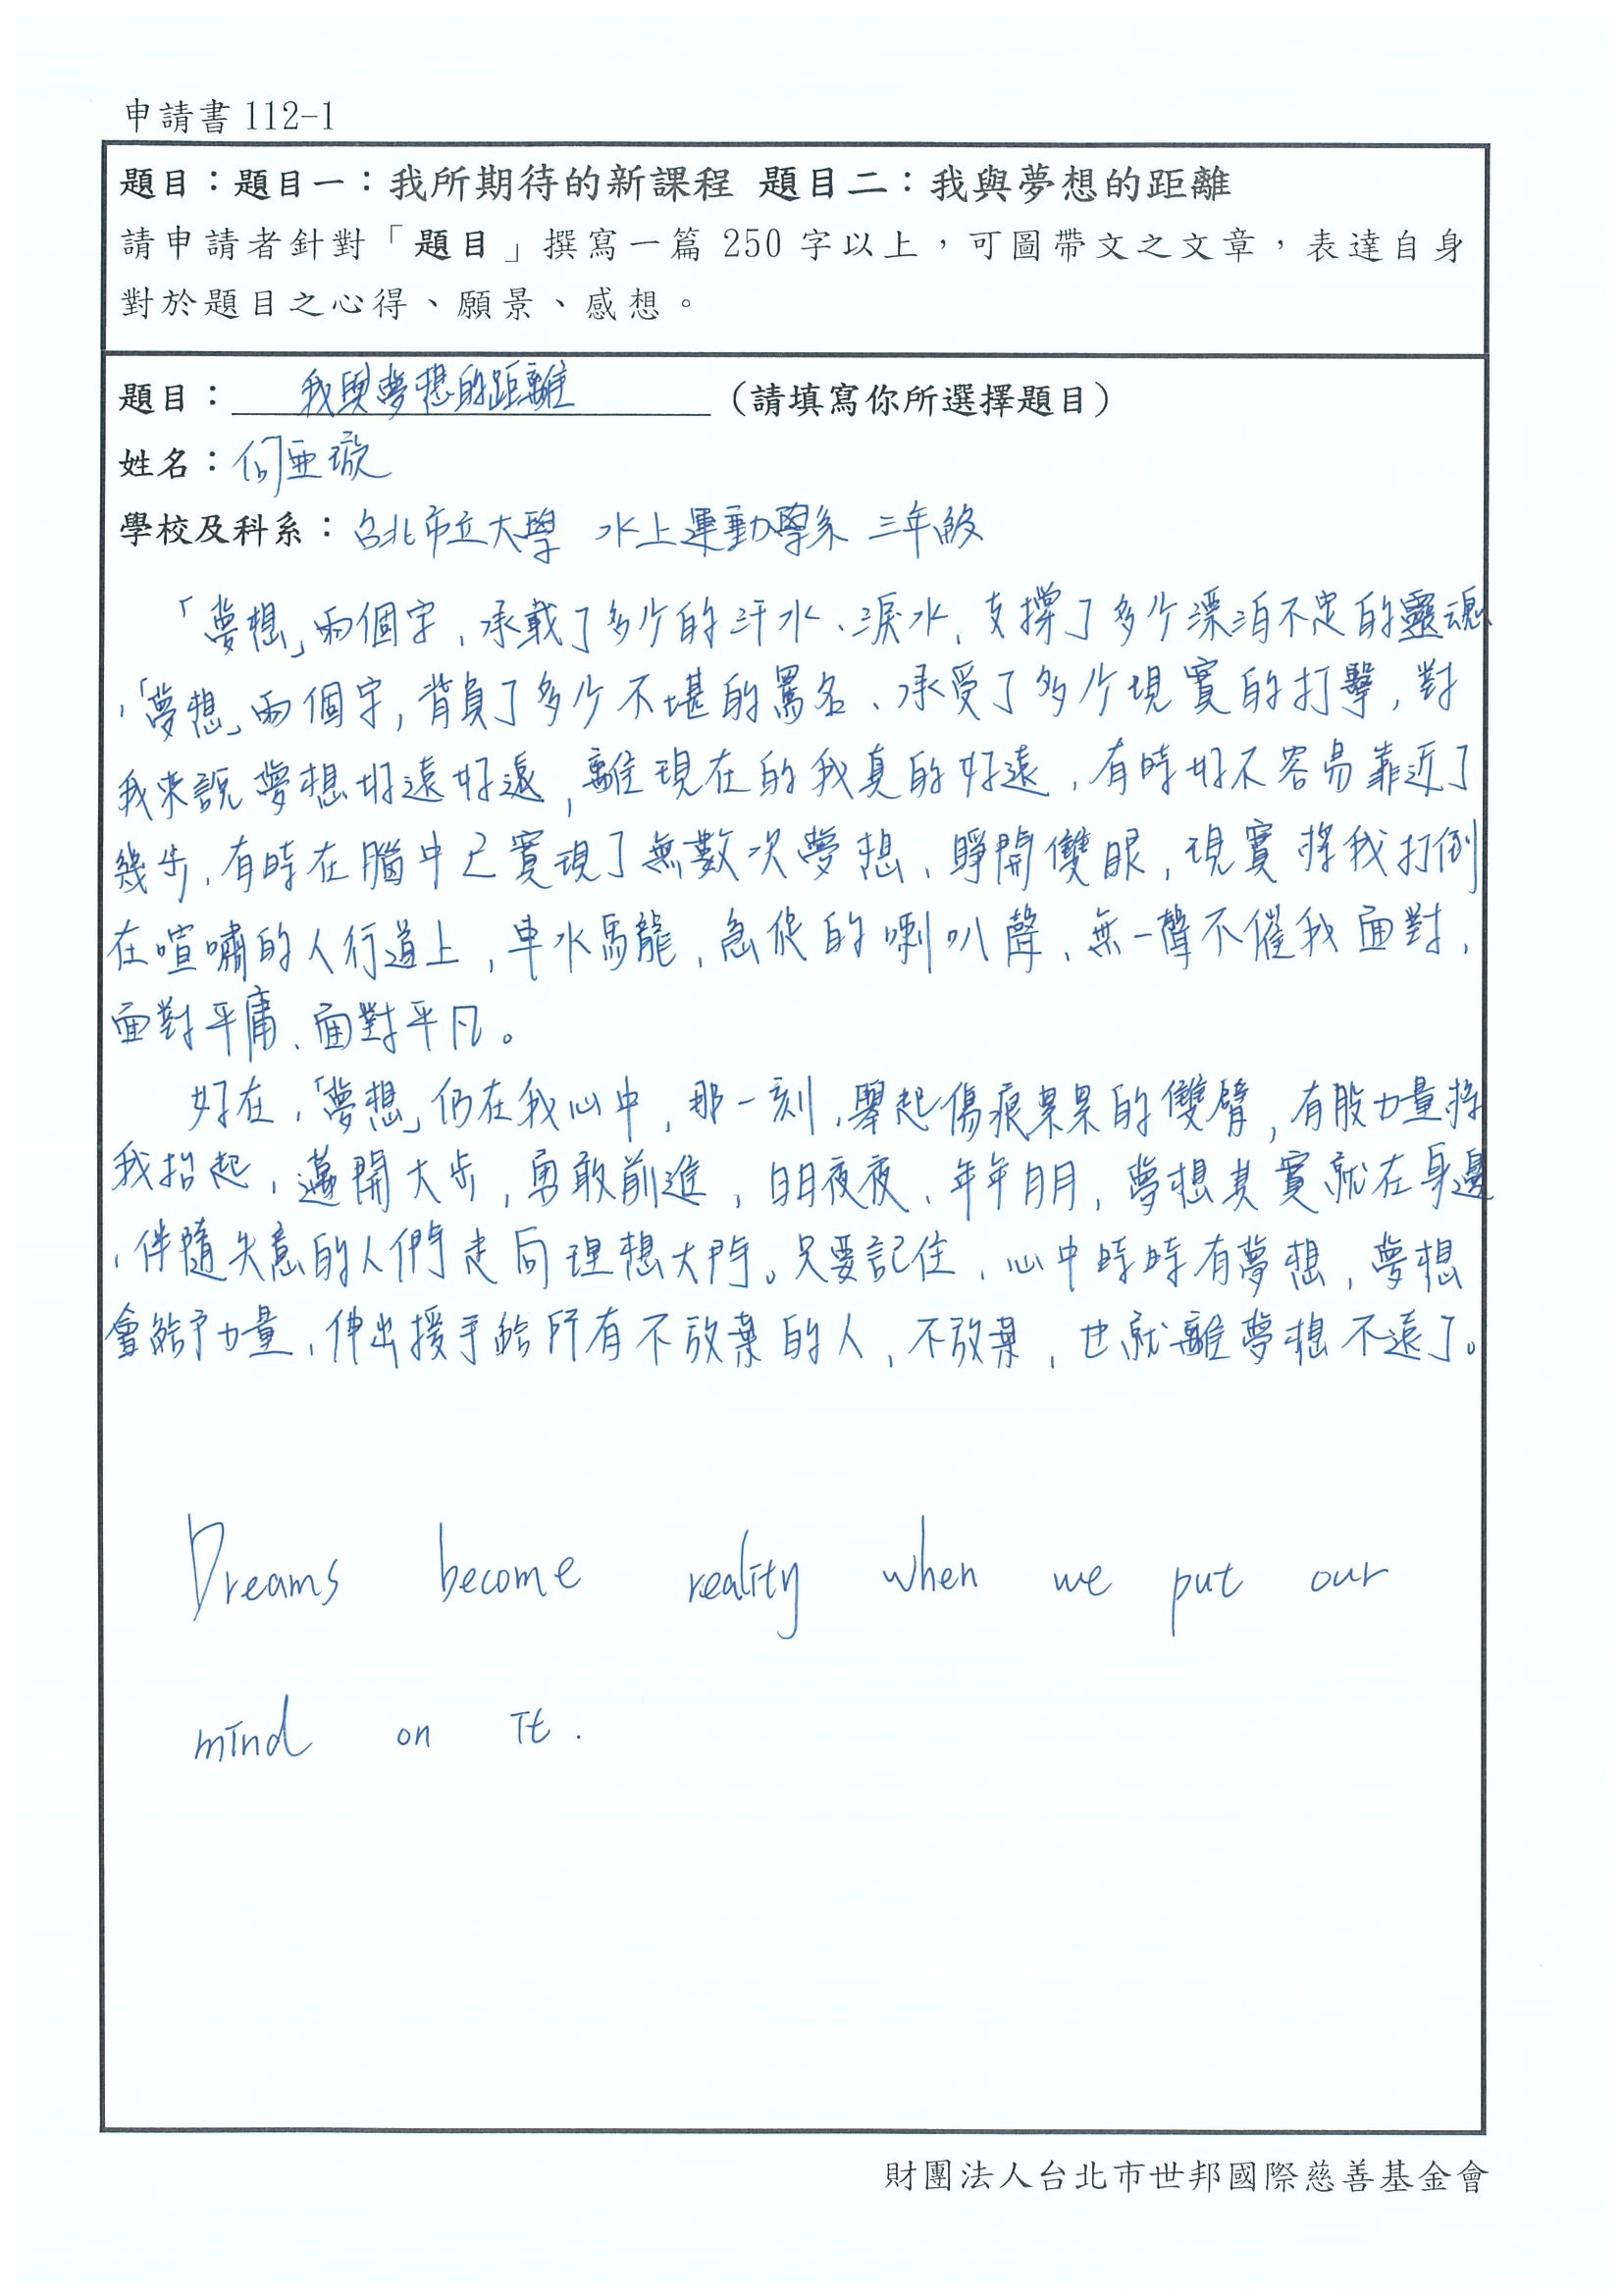 申請書 112-1
題目：題目一：我所期待的新課程 題目二：我與夢想的距離
請申請者針對「題目」撰寫一篇 250 字以上，可圖帶文之文章，表達自身
對於題目之心得、願景、感想。
題目：我與夢想的距離（請填寫你所選擇題目）
姓名：何亜璇
學校及科系：台北市立大學 水上運動學系 三年級
「夢想」兩個字，承載了多少的汗水、淚水，支撐了多少漂泊不定的靈魂
，「夢想」兩個字，背負了多少不堪的罵名、承受了多少現實的打擊，對
我來說夢想好遠好遠，離現在的我真的好遠，有時好不容易靠近了
幾步，有時在腦中已實現了無數次夢想，睜開雙眼，現實將我打倒
在喧嘯的人行道上，車水馬龍，急促的喇叭聲，無一聲不催我面對，
面對平庸、面對平凡。
好在，「夢想」仍在我心中，那一刻，舉起傷痕累累的雙臂，有股力量將
我抬起，邁開大步，勇敢前進，日日夜夜、年年月月，夢想其實就在身邊
，伴隨失意的人們走向理想大門。只要記住，心中時時有夢想，夢想
會給予力量，伸出援手給所有不放棄的人，不放棄，也就離夢想不遠了。
Dreams become reality when we put our
mind on it.
財團法人台北市世邦國際慈善基金會